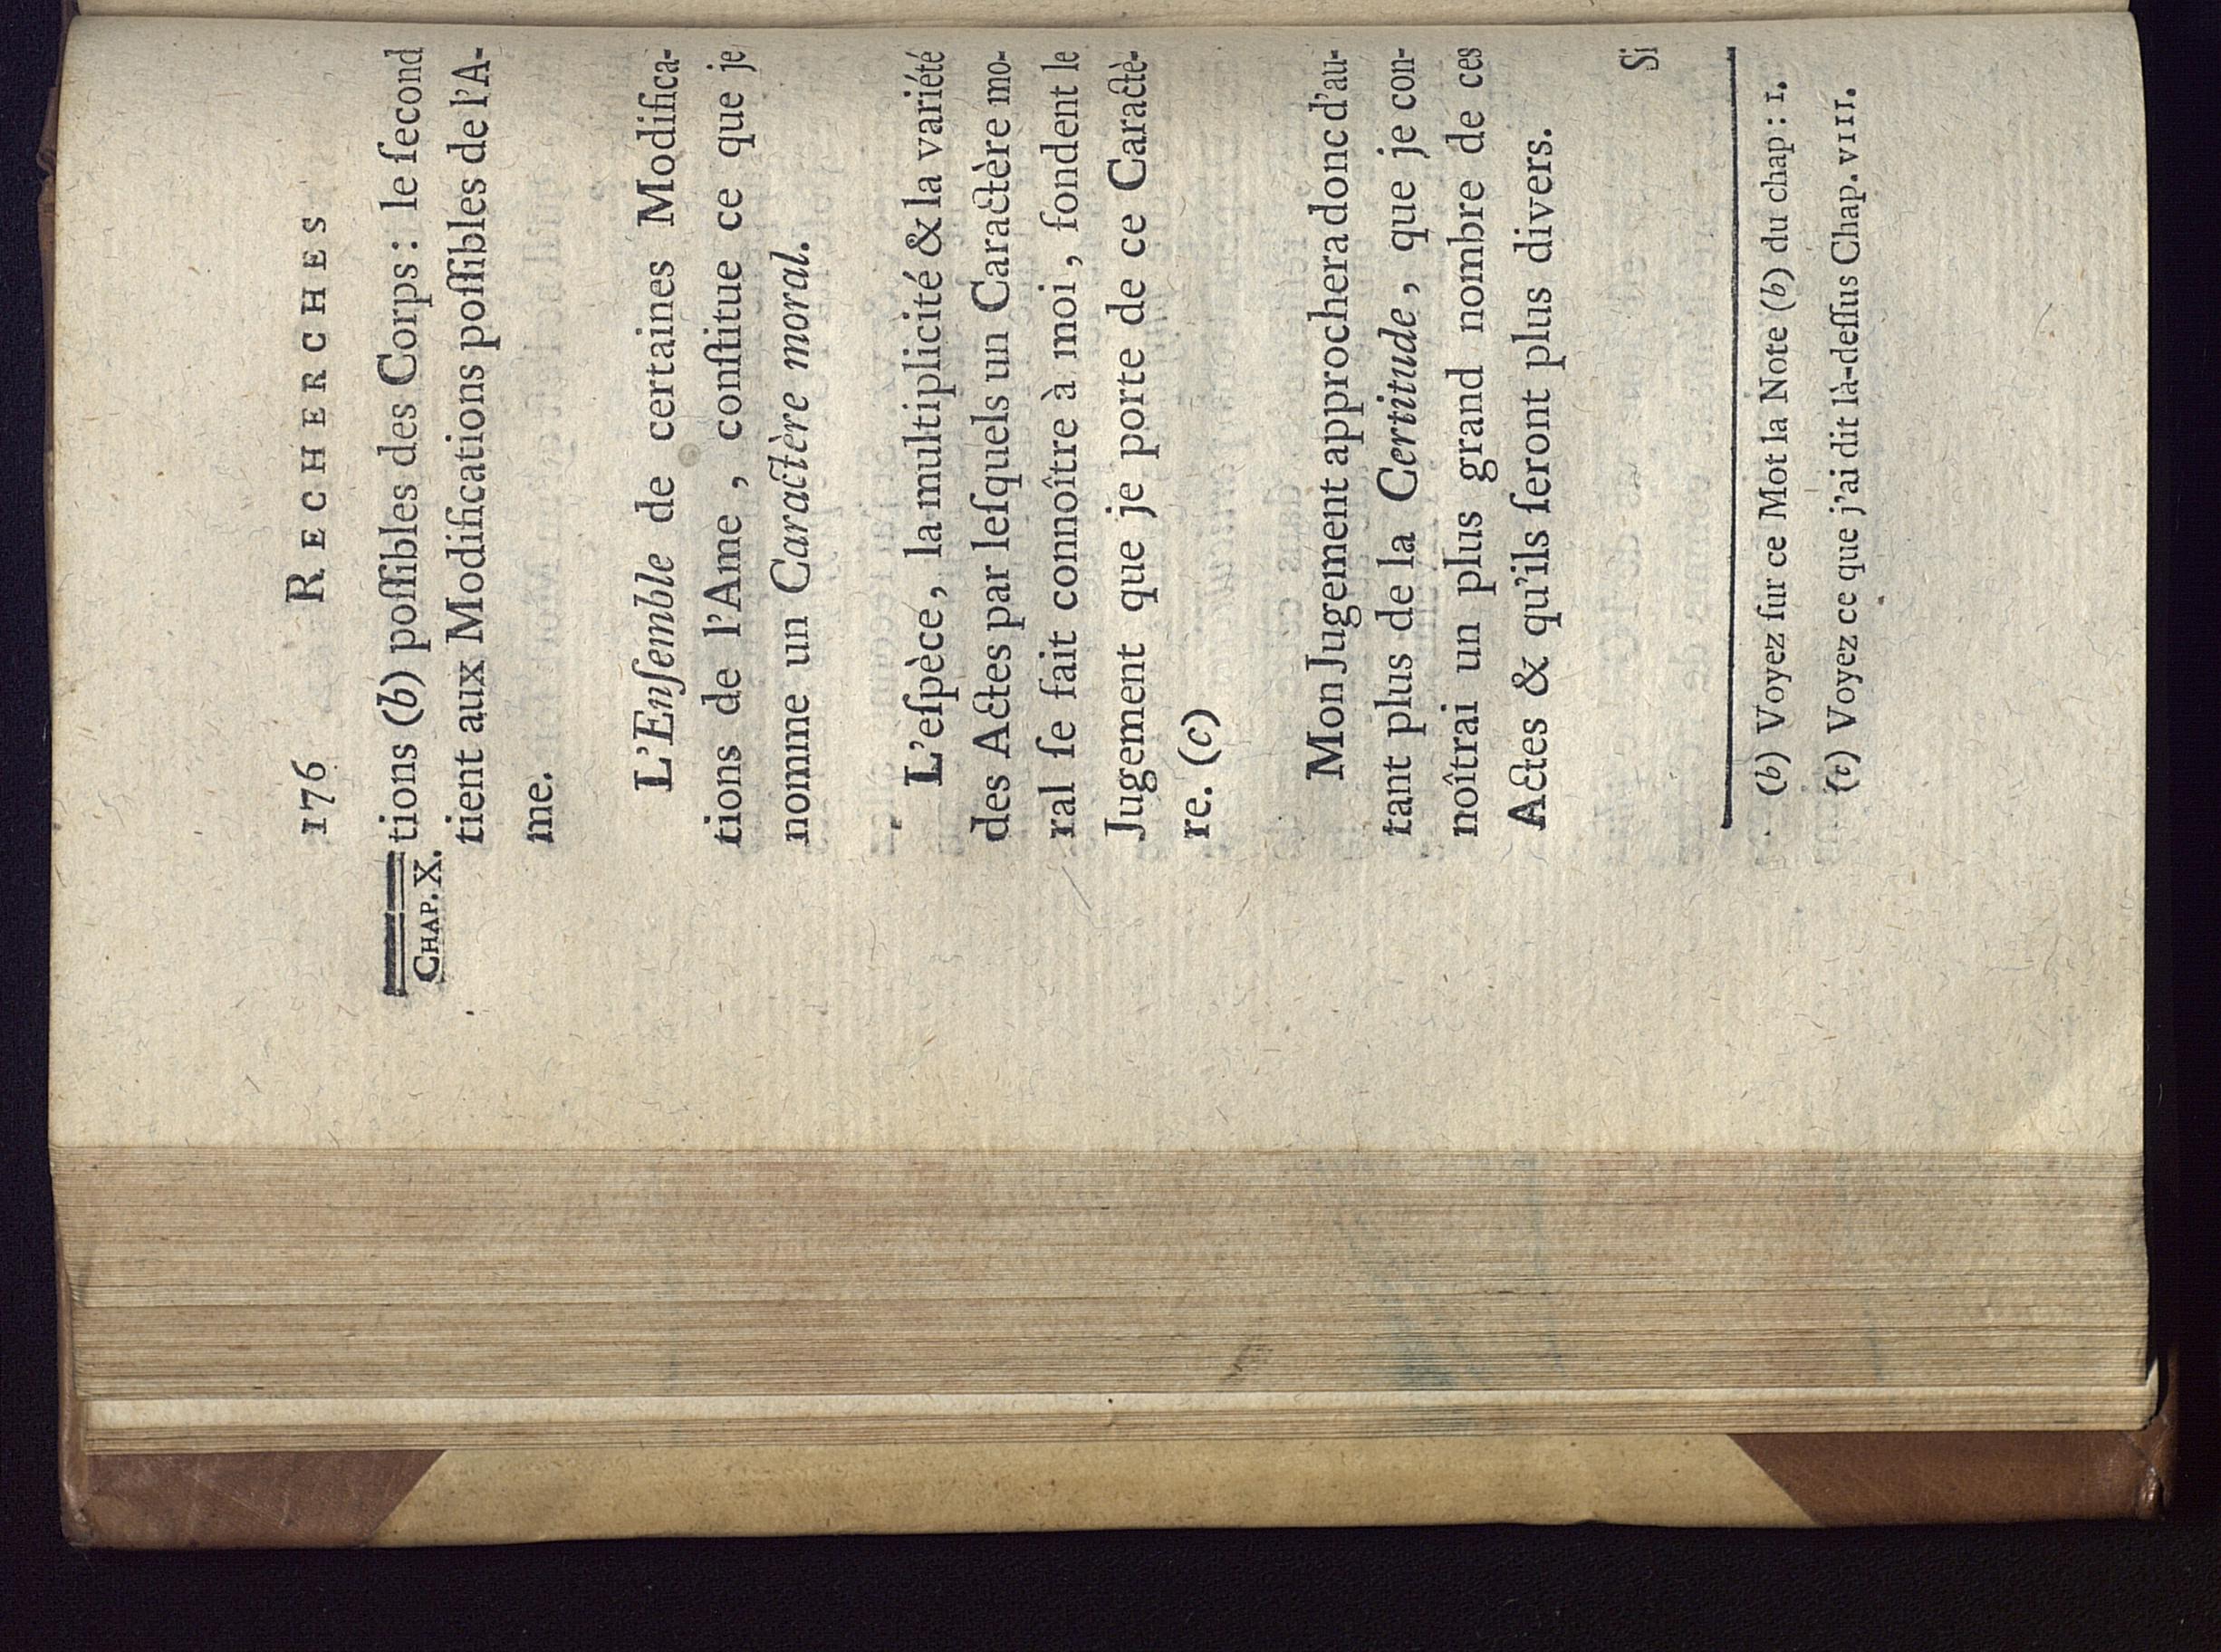 176 RECHERCHES
CHAP. X.
tions (b) poſſibles des Corps : le ſecond
tient aux Modifications poſſibles de l'A-
me.
L'Enſemble de certaines Modifica-
tions de l'Ame, conſtitue ce que je
nomme un Caractère moral.
L'eſpèce, la multiplicité & la variété
des Actes par leſquels un Caractère mo-
ral ſe fait connoître à moi, fondent le
Jugement que je porte de ce Caractè-
re. (c)
Mon Jugement approchera donc d'au-
tant plus de la Certitude, que je con-
noîtrai un plus grand nombre de ces
Actes & qu'ils ſeront plus divers.
Si
(b) Voyez ſur ce Mot la Note (b) du chap : I.
(c) Voyez ce que j'ai dit là-deſſus Chap. VIII.